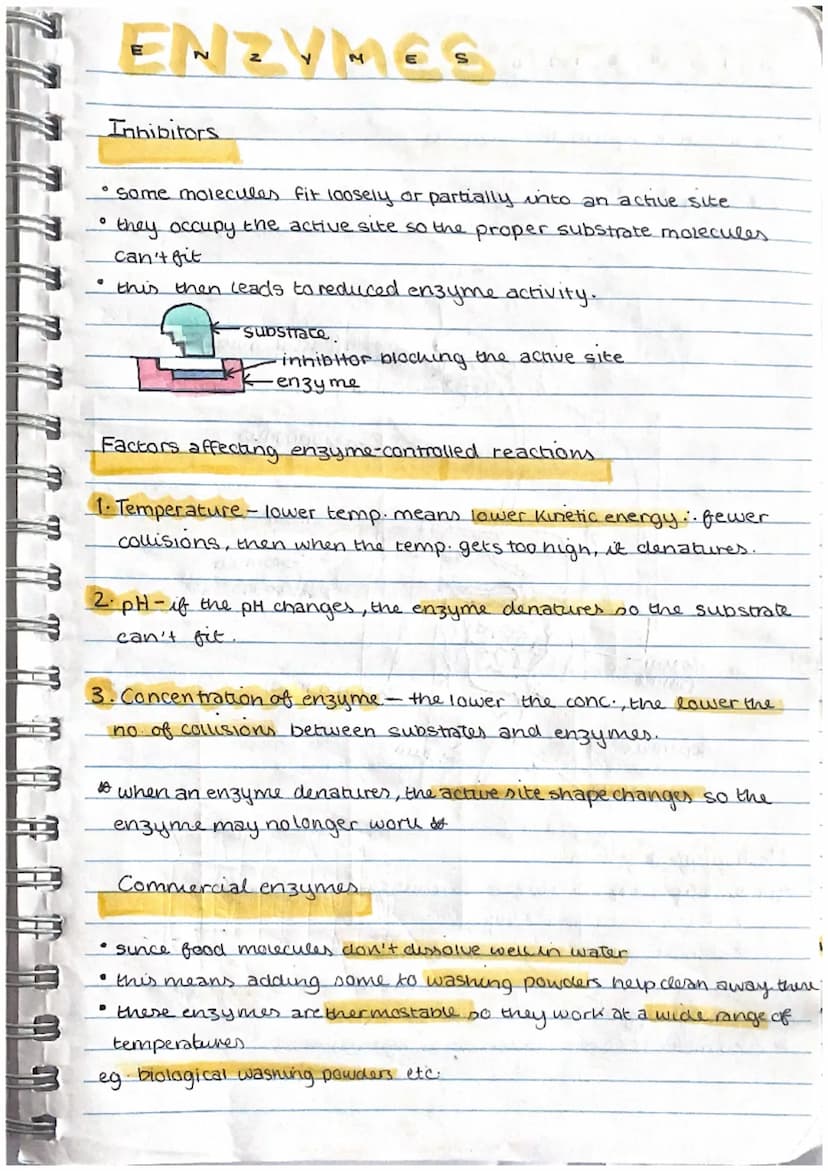 ENZYMES
Inhibitors
• some molecules fit loosely or partially into an active site
• they occupy the active site so the proper substrate molecules
can't fit
• this then leads to reduced enzyme activity.
substrate.
inhibitor blocking the active site
enzyme
Factors affecting enzyme-controlled reactions
1. Temperature - lower temp. means lower kinetic energy ∴ fewer
collisions, then when the temp. gets too high, it denatures.
2. pH - if the pH changes, the enzyme denatures so the substrate
can't fit.
3. Concentration of enzyme - the lower the conc., the lower the
no. of collisions between substrates and enzymes.
* when an enzyme denatures, the active site shape changes so the
enzyme may no longer work *
Commercial enzymes
• since food molecules don't dissolve well in water
• this means adding some to washing powders help clean away
• these enzymes are thermostable so they work at a wide range of
temperatures
eg. biological washing powders etc.